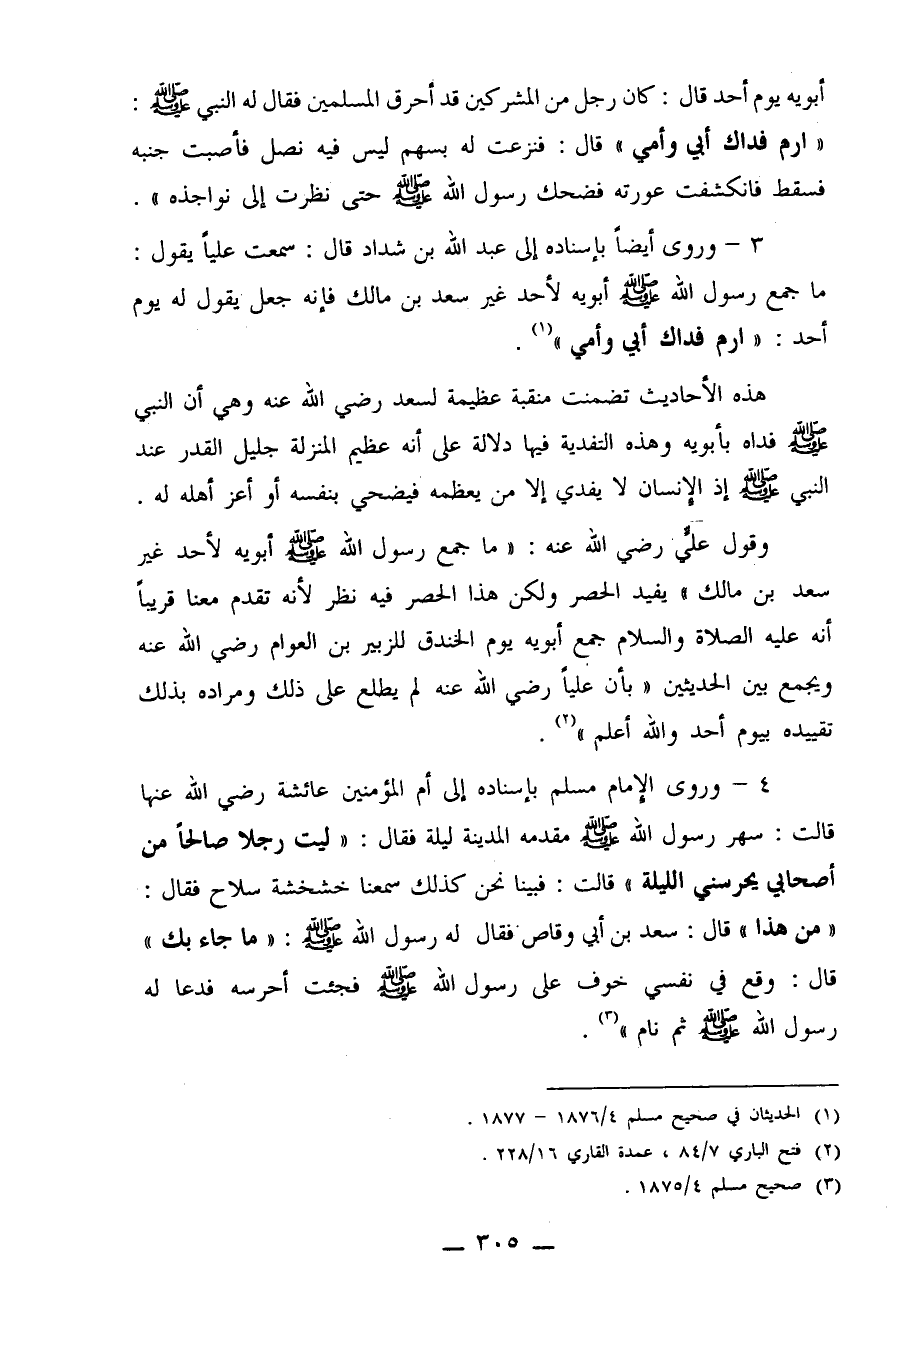 أبويه يوم أحد قال : كان رجل من المشركين قد أحرق المسلمين فقال له النبي ﷺ :
« ارم فداك أبي وأمي » قال : فنزعت له بسهم ليس فيه نصل فأصبت جنبه
فسقط فانكشفت عورته فضحك رسول الله ﷺ حتى نظرت إلى نواجذه » .
٣ – وروى أيضاً بإسناده إلى عبد الله بن شداد قال : سمعت علياً يقول :
ما جمع رسول الله ﷺ أبويه لأحد غير سعد بن مالك فإنه جعل يقول له يوم
أحد : « ارم فداك أبي وأمي »(١) .
هذه الأحاديث تضمنت منقبة عظيمة لسعد رضي الله عنه وهي أن النبي
ﷺ فداه بأبويه وهذه التفدية فيها دلالة على أنه عظيم المنزلة جليل القدر عند
النبي ﷺ إذ الإنسان لا يفدي إلا من يعظمه فيضحي بنفسه أو أعز أهله له .
وقول عليٍّ رضي الله عنه : « ما جمع رسول الله ﷺ أبويه لأحد غير
سعد بن مالك » يفيد الحصر ولكن هذا الحصر فيه نظر لأنه تقدم معنا قريباً
أنه عليه الصلاة والسلام جمع أبويه يوم الخندق للزبير بن العوام رضي الله عنه
ويجمع بين الحديثين « بأن علياً رضي الله عنه لم يطلع على ذلك ومراده بذلك
تقييده بيوم أحد والله أعلم »(٢) .
٤ – وروى الإمام مسلم بإسناده إلى أم المؤمنين عائشة رضي الله عنها
قالت : سهر رسول الله ﷺ مقدمه المدينة ليلة فقال : « ليت رجلا صالحاً من
أصحابي يحرسني الليلة » قالت : فبينا نحن كذلك سمعنا خشخشة سلاح فقال :
« من هذا » قال : سعد بن أبي وقاص فقال له رسول الله ﷺ : « ما جاء بك »
قال : وقع في نفسي خوف على رسول الله ﷺ فجئت أحرسه فدعا له
رسول الله ﷺ ثم نام »(٣) .
(١) الحديثان في صحيح مسلم ١٨٧٦/٤ – ١٨٧٧ .
(٢) فتح الباري ٨٤/٧ ، عمدة القاري ٢٢٨/١٦ .
(٣) صحيح مسلم ١٨٧٥/٤ .
— ٣٠٥ —